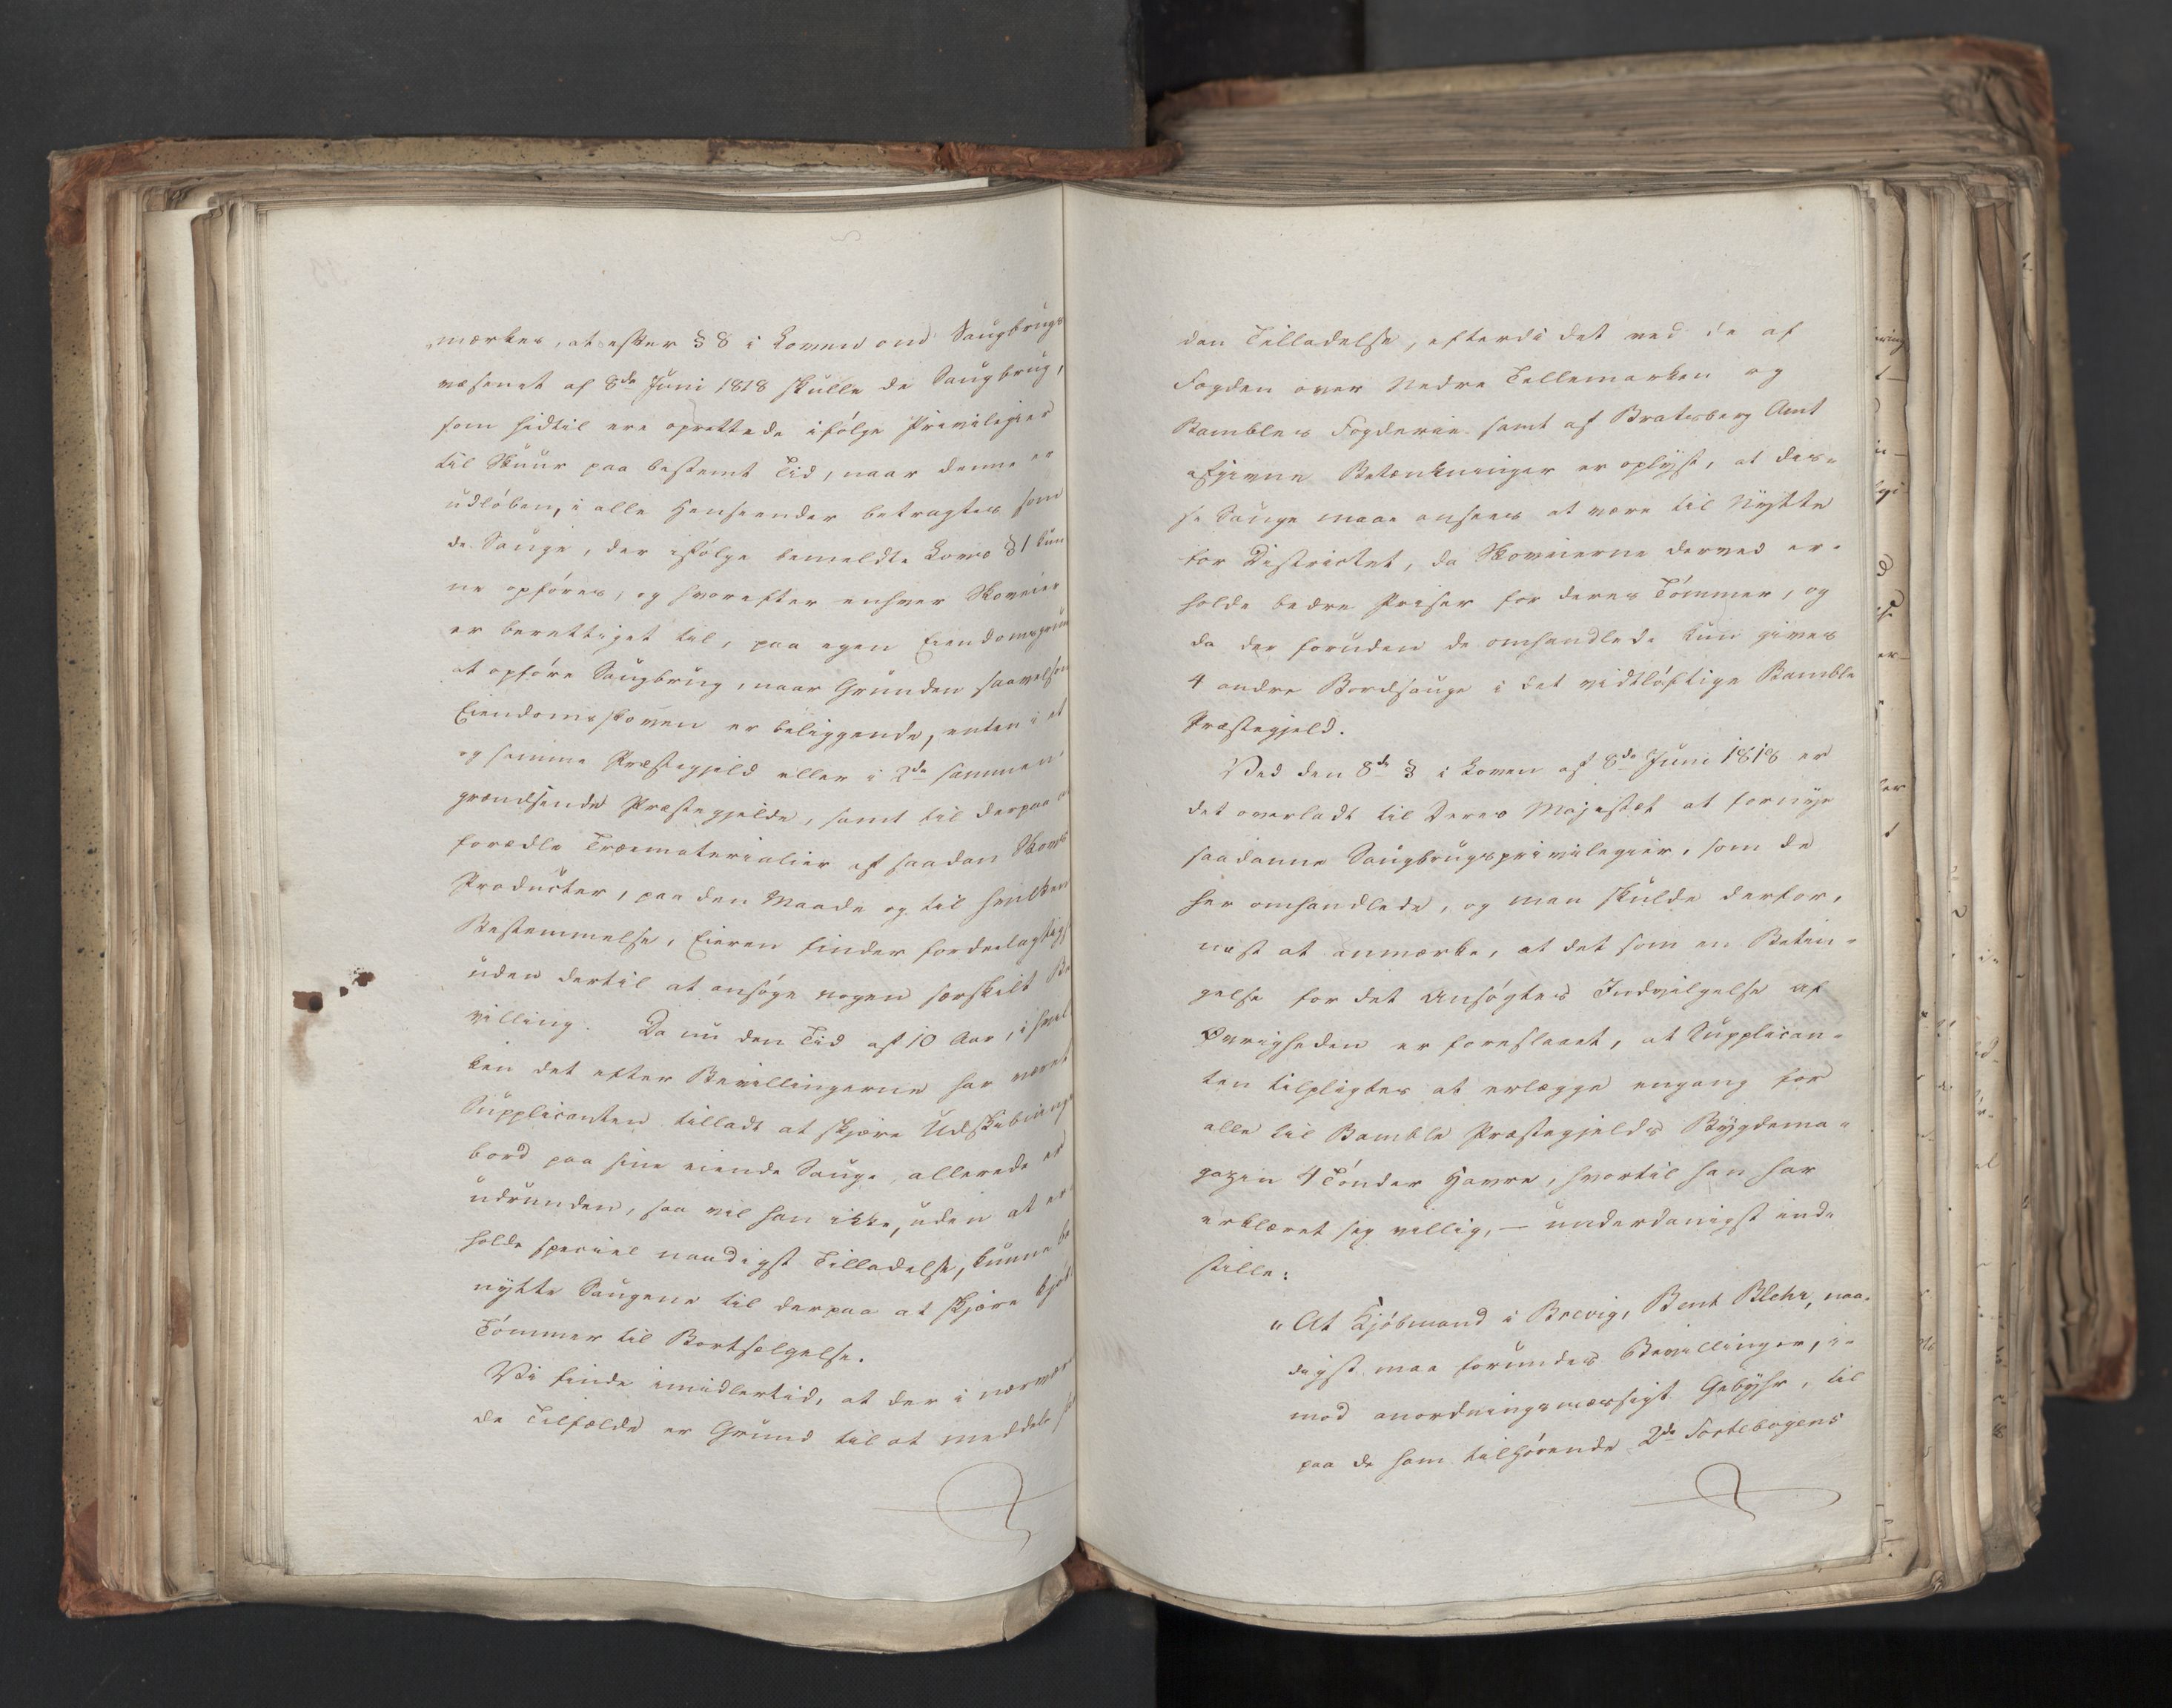 mærkes, at efter § 8 i Loven om Saugbrugs
væsenet af 8de Juni 1818 skulle de Saugbrug,
som hidtil ere oprettede ifölge Privilegier
til Skuur paa bestemt Tid, naar denne er
udlöben, i alle Henseender betragtes som
de Sauge, der ifölge bemeldte Lovs § 1 kun
ne opföres, og hvorefter enhver Skoveier
er berettiget til, paa egen Eiendomsgrun
at opföre Saugbrug, naar Grunden saavelsom
Eiendomsskoven er beliggende, enten i et
og samme Præstegjeld eller i 2de sammen
grændsende Præstegjelde, samt til derpaa
forædle Træematerialier af saadan Skovs
Producter, paa den Maade og til hvilken
Bestemmelse, Eieren finder fordeelagtigst
uden dertil at ansöge nogen særskilt Be
villing. Da nu den Tid af 10 Aar, i hvil
ken det efter Bevillingerne har været
Supplicanten tilladt at skjære Udskibnings
bord paa sine eiende Sauge, allerede er
udrunden, saa vil han ikke, uden at er
holde speciel naadigst Tilladelse, kunne be
nytte Saugene til derpaa at skjære kjöbt
Tömmer til Bortsælgelse.
Vi finde imidlertid, at der i nærvæ
de Tilfælde er Grund til at meddele
den Tilladelse, efterdi det ved de af
Fogden over Nedre Tellemarken og
Bambles Fogderie samt af Bratsberg Amt
afgivne Betænkninger er oplyst, at dis-
se Sauge maae ansees at være til Nytte
for Districtet, da Skoveierne derved er-
holde bedre Priser for deres Tömmer, og
da der foruden de omhandlede kun gives
4 andre Bordsauge i det vidtlöftige Bamble
Præstegjeld.
Ved den 8de § i Loven af 8de Juni 1818 er
det overladt til Deres Majestæt at fornye
saadanne Saugbrugsprivilegier, som de
her omhandlede, og man skulde derfor,
næst at anmærke, at det som en Betin-
gelse for det Ansögtes Indvilgelse af
Övrigheden er foreslaaet, at Supplican-
ten tilpligtes at erlægge engang for
alle til Bamble Præstegjelds Bygdema-
gazin 4 Tönder Havre, hvortil han har
erklæret sig villig, — underdanigst inde
stille:
"At Kjöbmand i Brevig, Bent Blehr, naa-
digst maa forundes Bevillinger, i-
mod anordningsmæssigt Gebyhr, til
paa de ham tilhörende 2de